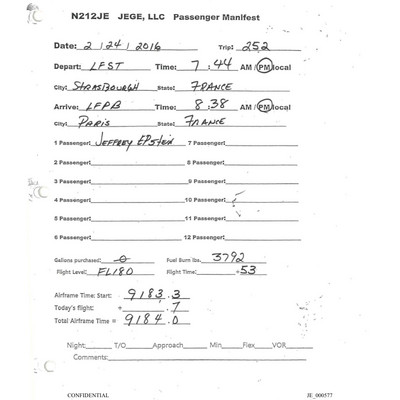 N212JE JEGE, LLC Passenger Manifest
Date: 2/24/2016 Trip: 252
Depart: LFST Time: 7:44 AM / PM local
City: STRASBOURGH State: FRANCE
Arrive: LFPB Time: 8:38 AM / PM local
City: PARIS State: FRANCE
1 Passenger: JEFFREY EPStEiN 7 Passenger:
2 Passenger: 8 Passenger:
3 Passenger: 9 Passenger:
4 Passenger: 10 Passenger:
5 Passenger: 11 Passenger:
6 Passenger: 12 Passenger:
Gallons purchased: 0 Fuel Burn lbs. 3792
Flight Level: FL180 Flight Time: +53
Airframe Time: Start: 9183.3
Today's flight: + .7
Total Airframe Time = 9184.0
Night: T/O Approach Min Flex VOR
Comments:
CONFIDENTIAL JE_000577